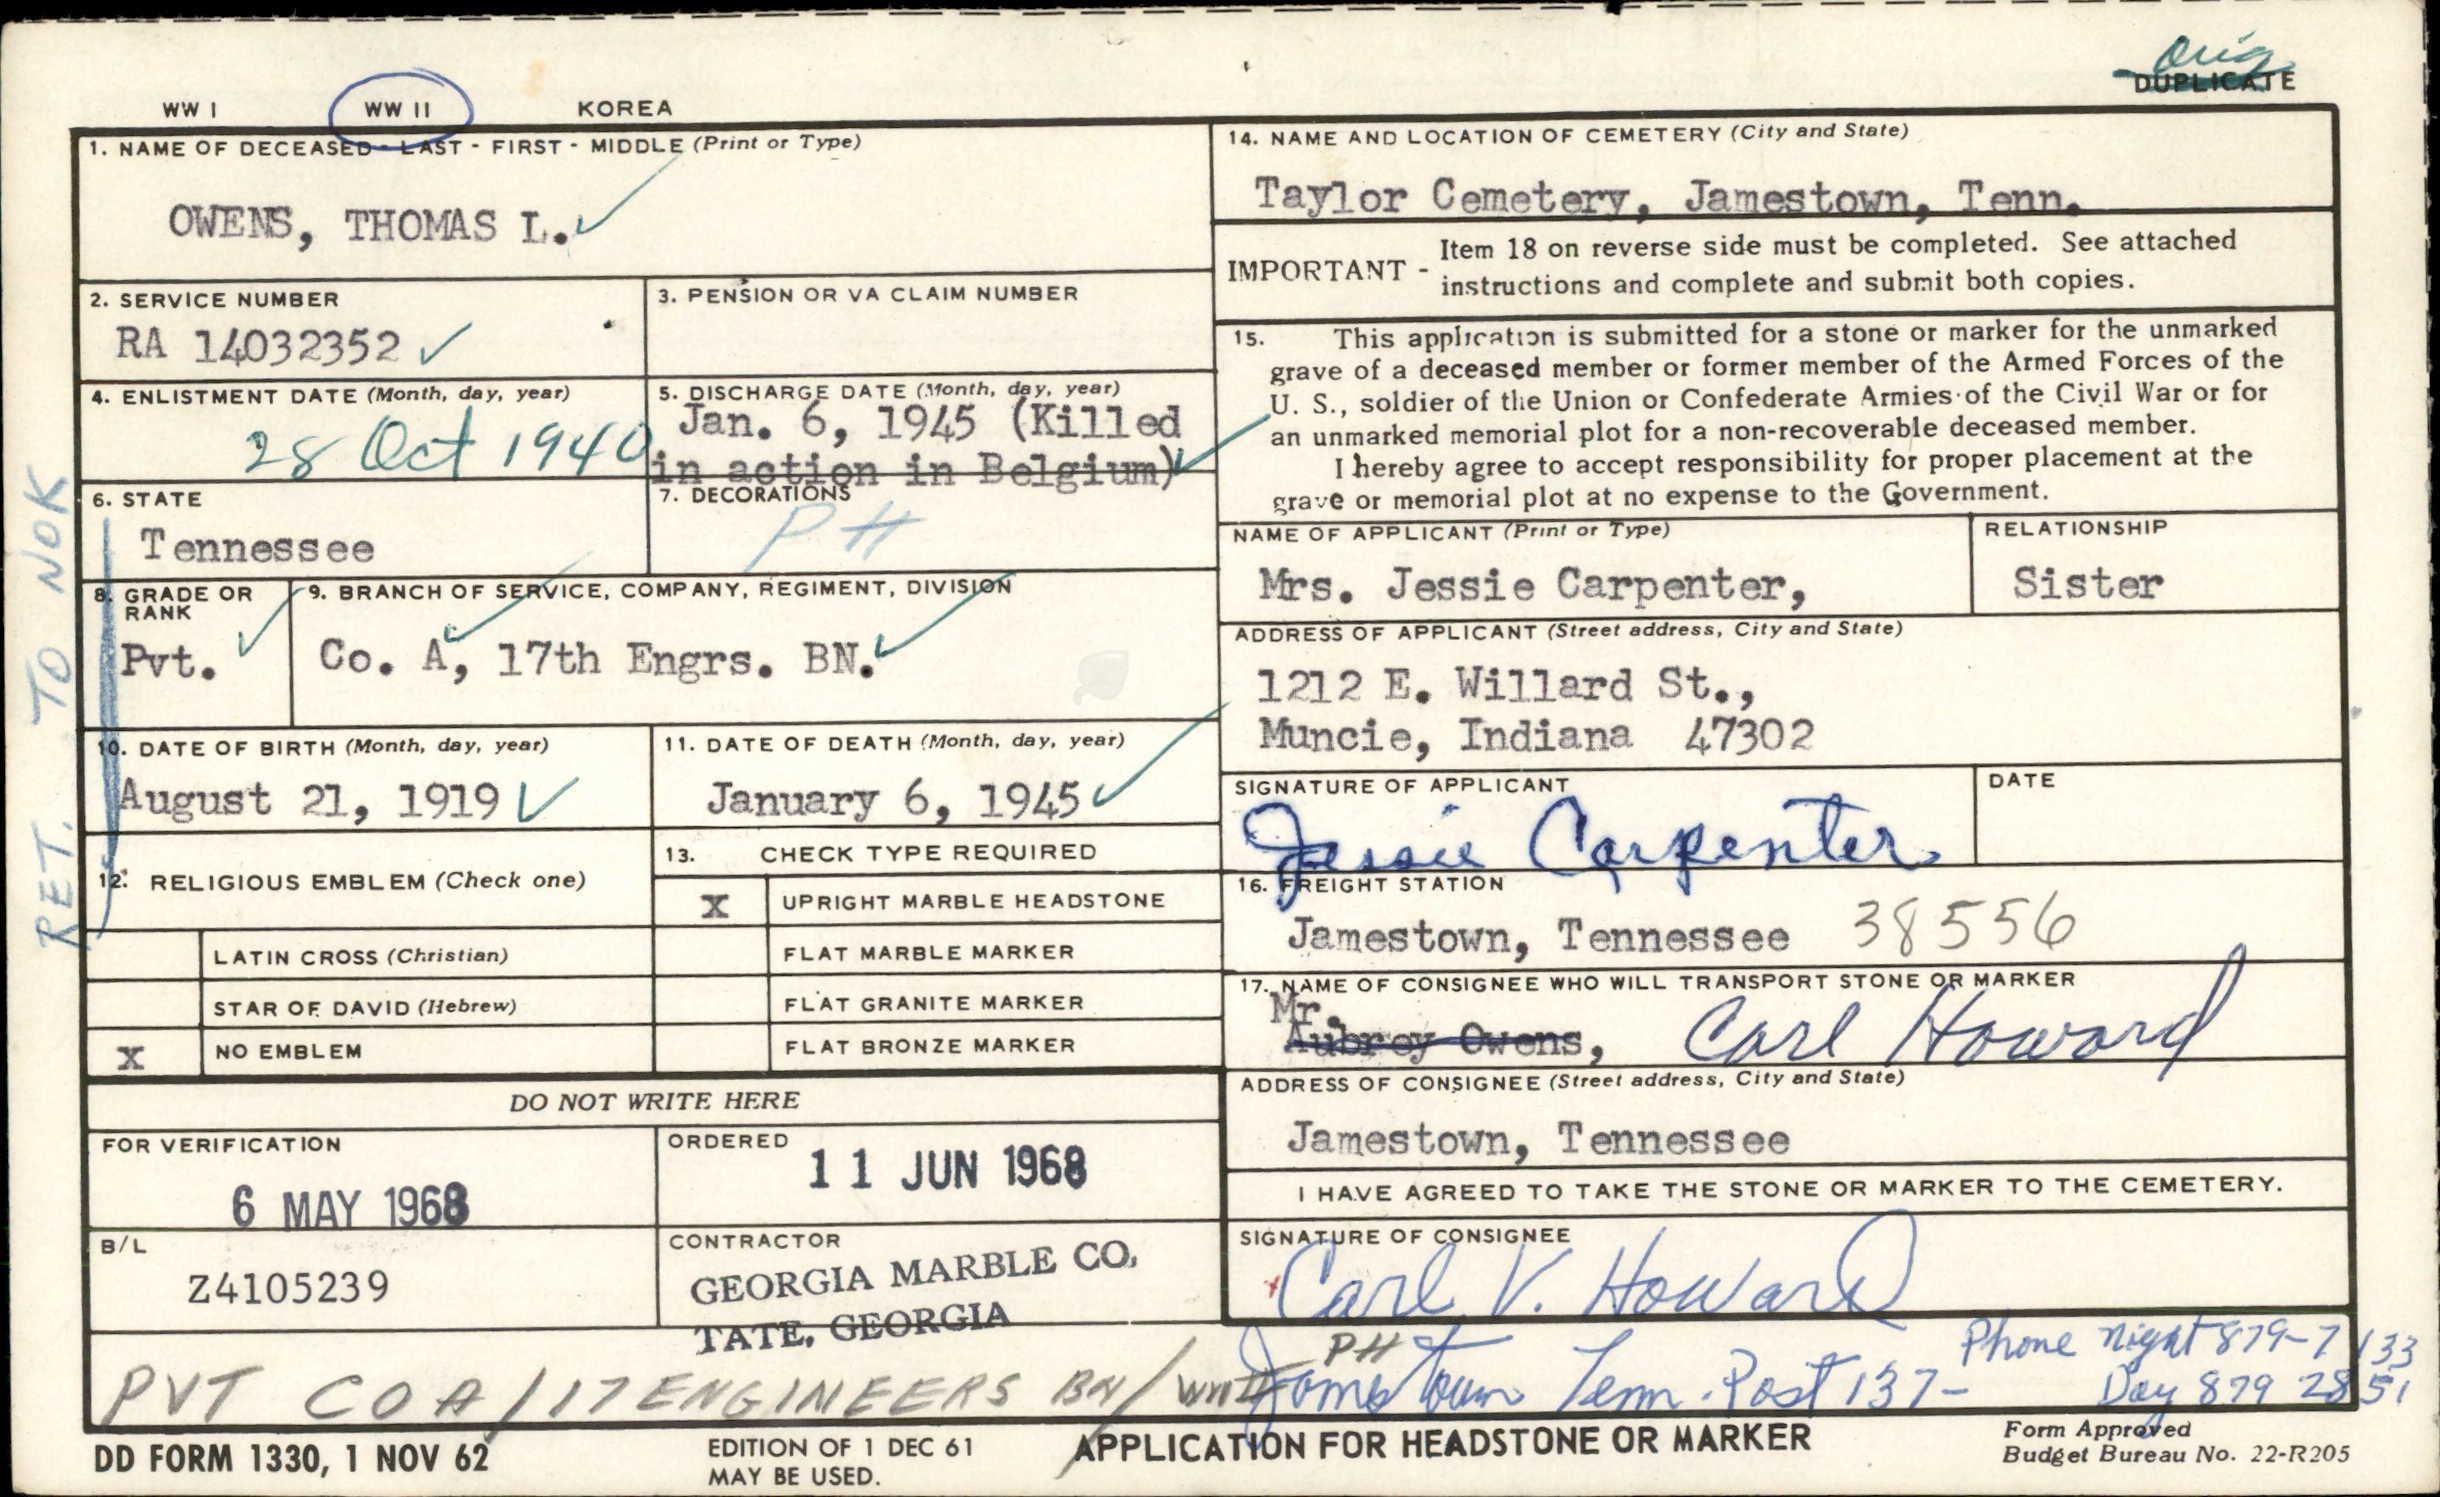 Orig
DUPLICATE
WW I WW II KOREA
1. NAME OF DECEASED - LAST - FIRST - MIDDLE (Print or Type)
OWENS, THOMAS L.
2. SERVICE NUMBER
RA 14032352
3. PENSION OR VA CLAIM NUMBER
4. ENLISTMENT DATE (Month, day, year)
28 Oct 1940
5. DISCHARGE DATE (Month, day, year)
Jan. 6, 1945 (Killed
in action in Belgium)
6. STATE
Tennessee
7. DECORATIONS
PH
8. GRADE OR
RANK
Pvt.
9. BRANCH OF SERVICE, COMPANY, REGIMENT, DIVISION
Co. A, 17th Engrs. BN.
10. DATE OF BIRTH (Month, day, year)
August 21, 1919
11. DATE OF DEATH (Month, day, year)
January 6, 1945
12. RELIGIOUS EMBLEM (Check one)
LATIN CROSS (Christian)
STAR OF DAVID (Hebrew)
X NO EMBLEM
13. CHECK TYPE REQUIRED
X UPRIGHT MARBLE HEADSTONE
FLAT MARBLE MARKER
FLAT GRANITE MARKER
FLAT BRONZE MARKER
DO NOT WRITE HERE
FOR VERIFICATION
6 MAY 1968
ORDERED
11 JUN 1968
B/L
Z4105239
CONTRACTOR
GEORGIA MARBLE CO.
TATE, GEORGIA
PVT CO A/17 ENGINEERS BN/WWII
PH
RET. TO NOK
14. NAME AND LOCATION OF CEMETERY (City and State)
Taylor Cemetery, Jamestown, Tenn.
IMPORTANT - Item 18 on reverse side must be completed. See attached
instructions and complete and submit both copies.
15. This application is submitted for a stone or marker for the unmarked
grave of a deceased member or former member of the Armed Forces of the
U. S., soldier of the Union or Confederate Armies of the Civil War or for
an unmarked memorial plot for a non-recoverable deceased member.
I hereby agree to accept responsibility for proper placement at the
grave or memorial plot at no expense to the Government.
NAME OF APPLICANT (Print or Type)
Mrs. Jessie Carpenter,
RELATIONSHIP
Sister
ADDRESS OF APPLICANT (Street address, City and State)
1212 E. Willard St.,
Muncie, Indiana 47302
SIGNATURE OF APPLICANT
Jessie Carpenter
DATE
16. FREIGHT STATION
Jamestown, Tennessee 38556
17. NAME OF CONSIGNEE WHO WILL TRANSPORT STONE OR MARKER
Mr.
Aubrey Owens, Carl Howard
ADDRESS OF CONSIGNEE (Street address, City and State)
Jamestown, Tennessee
I HAVE AGREED TO TAKE THE STONE OR MARKER TO THE CEMETERY.
SIGNATURE OF CONSIGNEE
x Carl V. Howard
Jamestown Tenn. Post 137-
Phone night 879-7133
Day 879 2851
DD FORM 1330, 1 NOV 62
EDITION OF 1 DEC 61
MAY BE USED.
APPLICATION FOR HEADSTONE OR MARKER
Form Approved
Budget Bureau No. 22-R205